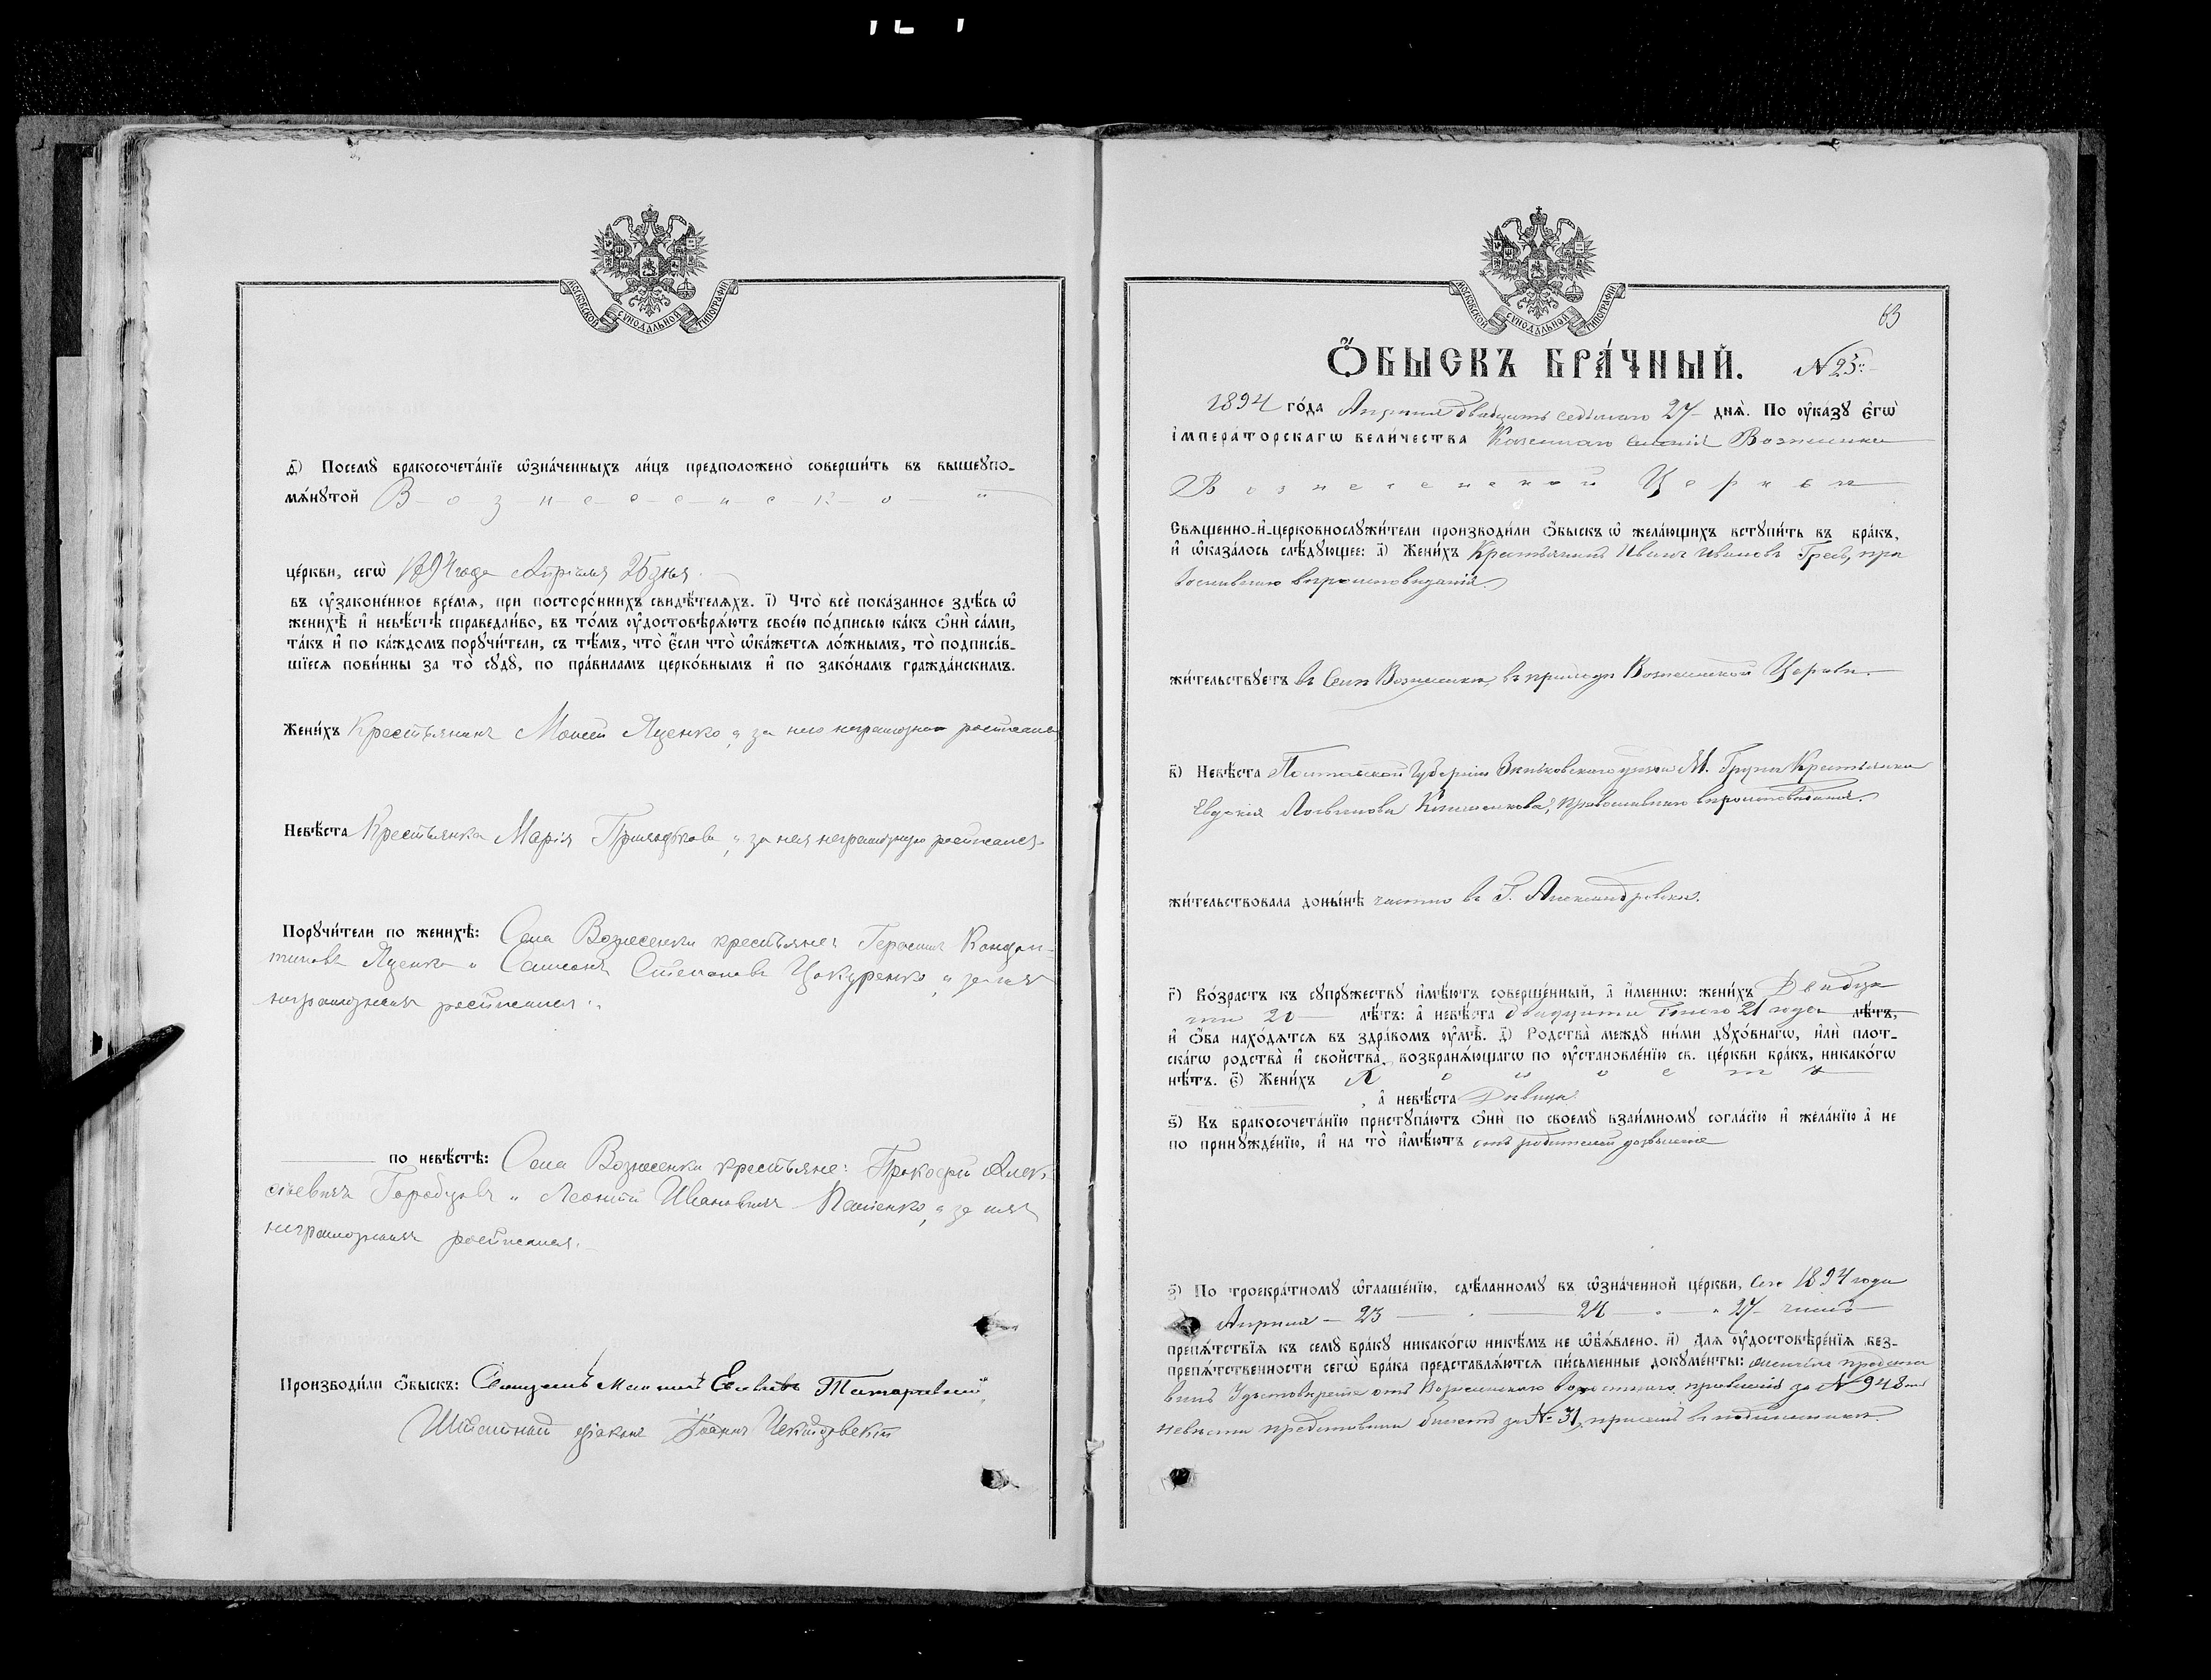 МОСКОВСКОЙ СѴНОДАЛЬНОЙ ТИПОГРАФІИ
ѳ҃) Посемꙋ бракосочетáнїе ѡ҆знáченныхъ ли́цъ предположенò соверши́ть въ вышеꙋпо-
мѧ́нꙋтой В-о-з-н-е-с-е-н-с-к-о-й
цéркви, сегѡ̀ 1894 года Апрѣля 25 дня.
въ ᲂу҆законéнное врéмѧ, при посторóннихъ свидѣ́телѧхъ. і҃) Чтò всѐ покáзанное здѣ́сь ѡ҆
женихѣ̀ и҆ невѣ́стѣ справедли́во, въ тóмъ ᲂу҆достовѣрѧ́ютъ своéю пóдписью кáкъ ѻ҆нѝ сáми,
тáкъ и҆ по кáждомъ порꙋчи́тели, съ тѣ́мъ, чтò є҆́сли чтò ѡ҆кáжетсѧ лóжнымъ, тò подписáв-
шїесѧ пови́нны за тò сꙋдꙋ̀, по прáвиламъ церкóвнымъ и҆ по закóнамъ граждáнскимъ.
Жени́хъ Крестьянинъ Моисей Яценко, а за него неграмотнаго росписался
Невѣ́ста Крестьянка Марія, а за нея неграмотную росписался.
Порꙋчи́тели по женихѣ̀: Села Вознесенки крестьяне: Герасимъ
Яценко и Самсонъ Степановъ Цокуренко, а за нихъ
неграмотныхъ росписался:
по невѣ́стѣ: Села Вознесенки крестьяне: Прокофій Алек-
сѣевичъ Горобцовъ и Леонтій Ивановичъ, а за нихъ
неграмотныхъ росписался.
Производи́ли ѻ҆́быскъ: Священникъ Татаревскій,
Штатный діаконъ Іоаннъ
МОСКОВСКОЙ СѴНОДАЛЬНОЙ ТИПОГРАФІИ
63
Ѻ҆́БЫСКЪ БРА́ЧНЫЙ. N 25
1894 гóда Апрѣля двадцать седьмаго 27 днѧ̀. По ᲂу҆кáзꙋ є҆гѡ̀
і҆мперáторскагѡ вели́чества Казеннаго селенія Вознесенки
В о з н е с е н с к о й Ц е р к в и
Свѧщенно-и҆-церковнослꙋжи́тели производи́ли ѻ҆́быскъ ѡ҆ желáющихъ встꙋпи́ть въ брáкъ,
и҆ ѡ҆казáлось слѣ́дꙋющее: а҃) Жени́хъ Крестьянинъ Иванъ Ивановъ Гресь, пра
вославнаго вѣроисповѣданія
жи́тельствꙋетъ въ Селѣ Вознесенкѣ, въ приходѣ Вознесенской Церкви.
в҃) Невѣ́ста Полтавской Губерніи Зѣньковскаго уѣзда М. Груни Крестьянка
Евдокія, православнаго вѣроисповѣданія.
жи́тельствовала доны́нѣ частно въ Г. Александровскѣ.
г҃) Вóзрастъ къ сꙋпрꙋжествꙋ и҆мѣ́ютъ совершéнный, а҆̀ и҆́меннѡ: жени́хъ Двадца
ти 20 лѣ́тъ: а҆̀ невѣ́ста двадцати 21 года лѣ́тъ,
и҆ ѻ҆́ба нахóдѧтсѧ въ здрáвомъ ᲂу҆мѣ̀. д҃) Родствà междꙋ ни́ми дꙋхóвнагѡ, и҆лѝ плот-
скáгѡ родствà и҆ свойствà, возбранѧ́ющагѡ по ᲂу҆становлéнїю св. цéркви брáкъ, никакóгѡ
нѣ́тъ. є҃) Жени́хъ Х о л о с т ъ
, а҆̀ невѣ́ста Дѣвица
ѕ҃) Къ бракосочетáнїю пристꙋпáютъ ѻ҆нѝ по своемꙋ̀ взаи́мномꙋ соглáсїю и҆ желáнїю а҆̀ не
по принꙋждéнїю, и҆ на тò и҆мѣ́ютъ отъ родителей дозволеніе
з҃) По троекрáтномꙋ ѡ҆глашéнїю, сдѣ́ланномꙋ въ ѡ҆знáченной цéркви, сего 1894 года
Апрѣля - 23 - 24 - 27 числа
препѧ́тствїѧ къ семꙋ̀ брáкꙋ никакóгѡ никѣ́мъ не ѡ҆б̾ѧ́влено. и҃) Длѧ ᲂу҆достовѣрéнїѧ без-
препѧ́тственности сегѡ̀ брáка представлѧ́ютсѧ пи́сьменные докꙋмéнты: женихъ предста
вилъ Удостовѣреніе отъ Вознесенскаго волостнаго правленія за N 948
невѣста представила билетъ за № 31,